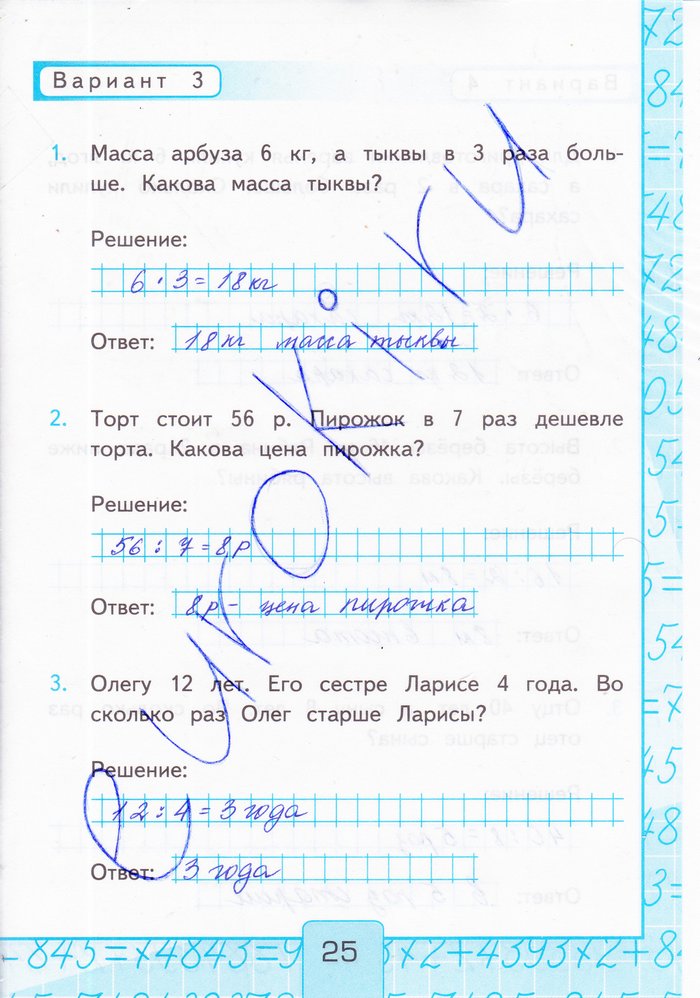 Вариант 3
1. Масса арбуза 6 кг, а тыквы в 3 раза боль-
ше. Какова масса тыквы?
Решение:
6 · 3 = 18 кг
Ответ: 18 кг масса тыквы
2. Торт стоит 56 р. Пирожок в 7 раз дешевле
торта. Какова цена пирожка?
Решение:
56 : 7 = 8 р
Ответ: 8 р - цена пирожка
3. Олегу 12 лет. Его сестре Ларисе 4 года. Во
сколько раз Олег старше Ларисы?
Решение:
12 : 4 = 3 года
Ответ: 3 года
25